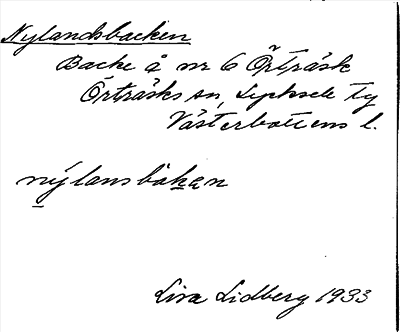 Nylandsbacken
Backe å nr 6 Örträsk
Örträsks sn, Lycksele ty
Västerbottens l.
nýlansbàkan
Lisa Lidberg 1933